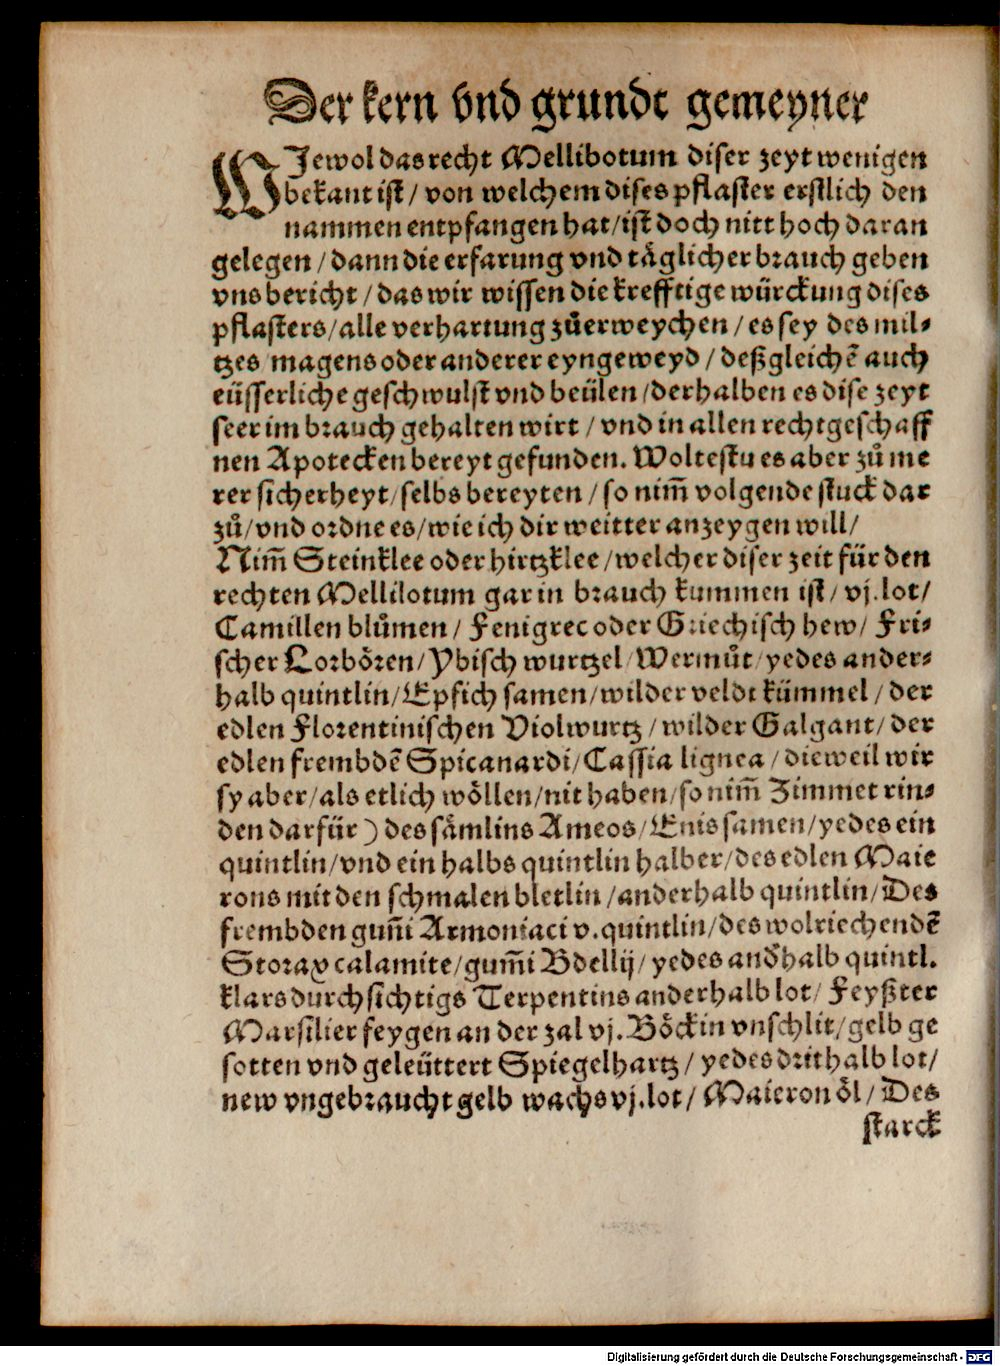 Der kern vnd grundt gemeyner
WJewol das recht Mellibotum diser zeyt wenigen
bekant ist / von welchem dises pflaster erstlich den
nammen entpfangen hat / ist doch nitt hoch daran
gelegen / dann die erfarung vnd täglicher brauch geben
vns bericht / das wir wissen die krefftige würckung dises
pflasters / alle verhartung zůerweychen / es sey des mil-
tzes magens oder anderer eyngeweyd / deßgleichē auch
eüsserliche geschwulst vnd beülen / derhalben es dise zeyt
seer im brauch gehalten wirt / vnd in allen rechtgeschaff
nen Apotecken bereyt gefunden. Woltestu es aber zů me
rer sicherheyt / selbs bereyten / so nim̄ volgende stuck dar
zů / vnd ordne es / wie ich dir weitter anzeygen will /
Nim̄ Steinklee oder hirtzklee / welcher diser zeit für den
rechten Mellilotum gar in brauch kummen ist / vj. lot /
Camillen blůmen / Fenigrec oder Griechisch hew / Fri-
scher Lorbören / Ybisch wurtzel / Wermůt / yedes ander-
halb quintlin / Epfich samen / wilder veldt kümmel / der
edlen Florentinischen Violwurtz / wilder Galgant / der
edlen frembdē Spicanardi / Cassia lignea / dieweil wir
sy aber / als etlich wöllen / nit haben / so nim̄ Zimmet rin-
den darfür ) des sämlins Ameos / Enis samen / yedes ein
quintlin / vnd ein halbs quintlin halber / des edlen Maie
rons mit den schmalen bletlin / anderhalb quintlin / Des
frembden gum̄i Armoniaci v. quintlin / des wolriechendē
Storax calamite / gum̄i Bdellij / yedes andhalb quintl.
klars durchsichtigs Terpentins anderhalb lot / Feyßter
Marsilier feygen an der zal vj. Böckin vnschlit / gelb ge
sotten vnd geleüttert Spiegelhartz / yedes drithalb lot /
new vngebraucht gelb wachs vj. lot / Maieron öl / Des
starck
Digitalisierung gefördert durch die Deutsche Forschungsgemeinschaft - DFG